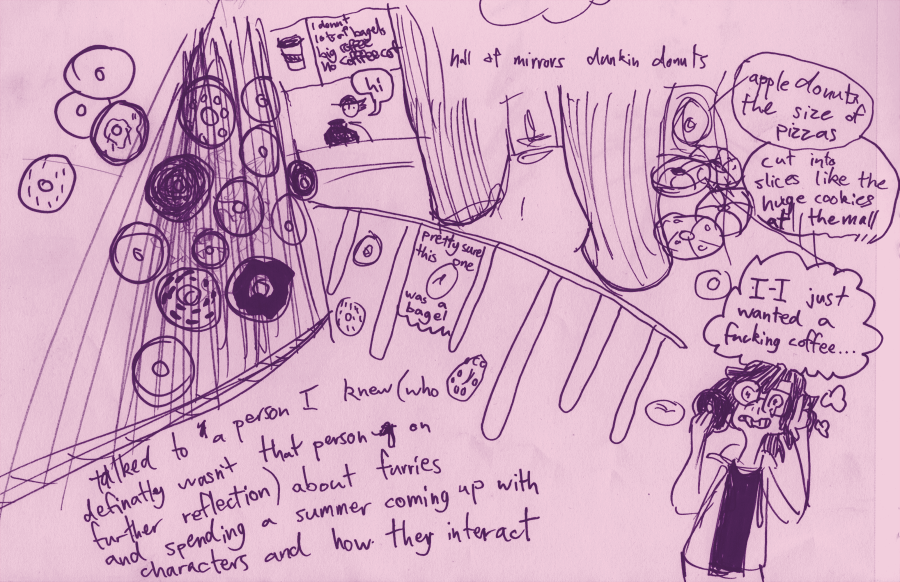 1 donut
lots of bagels
big coffee
no coffee cost
hi
hall of mirrors dunkin donuts
apple donuts
the size of
pizzas
cut into
slices like the
huge cookies
at the mall
pretty sure
this one
was a
bagel
I-I just
wanted a
fucking coffee...
talked to a person I knew (who
definatly wasnt that person on
further reflection) about furries
and spending a summer coming up with
characters and how they interact